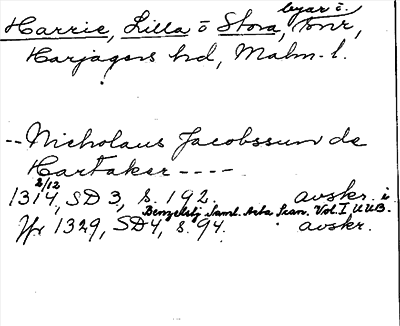 Harrie, Lilla o Stora, byar o. tnr,
Harjagers hd, Malm. l.
-- Nicholaus Jacobssun de
Hartaker ----
1314 2/12, SD 3, s. 192. avskr. i
Benzelstj. Saml. Acta Scan. Vol. I UUB.
Jfr 1329, SD4, s. 94. avskr.